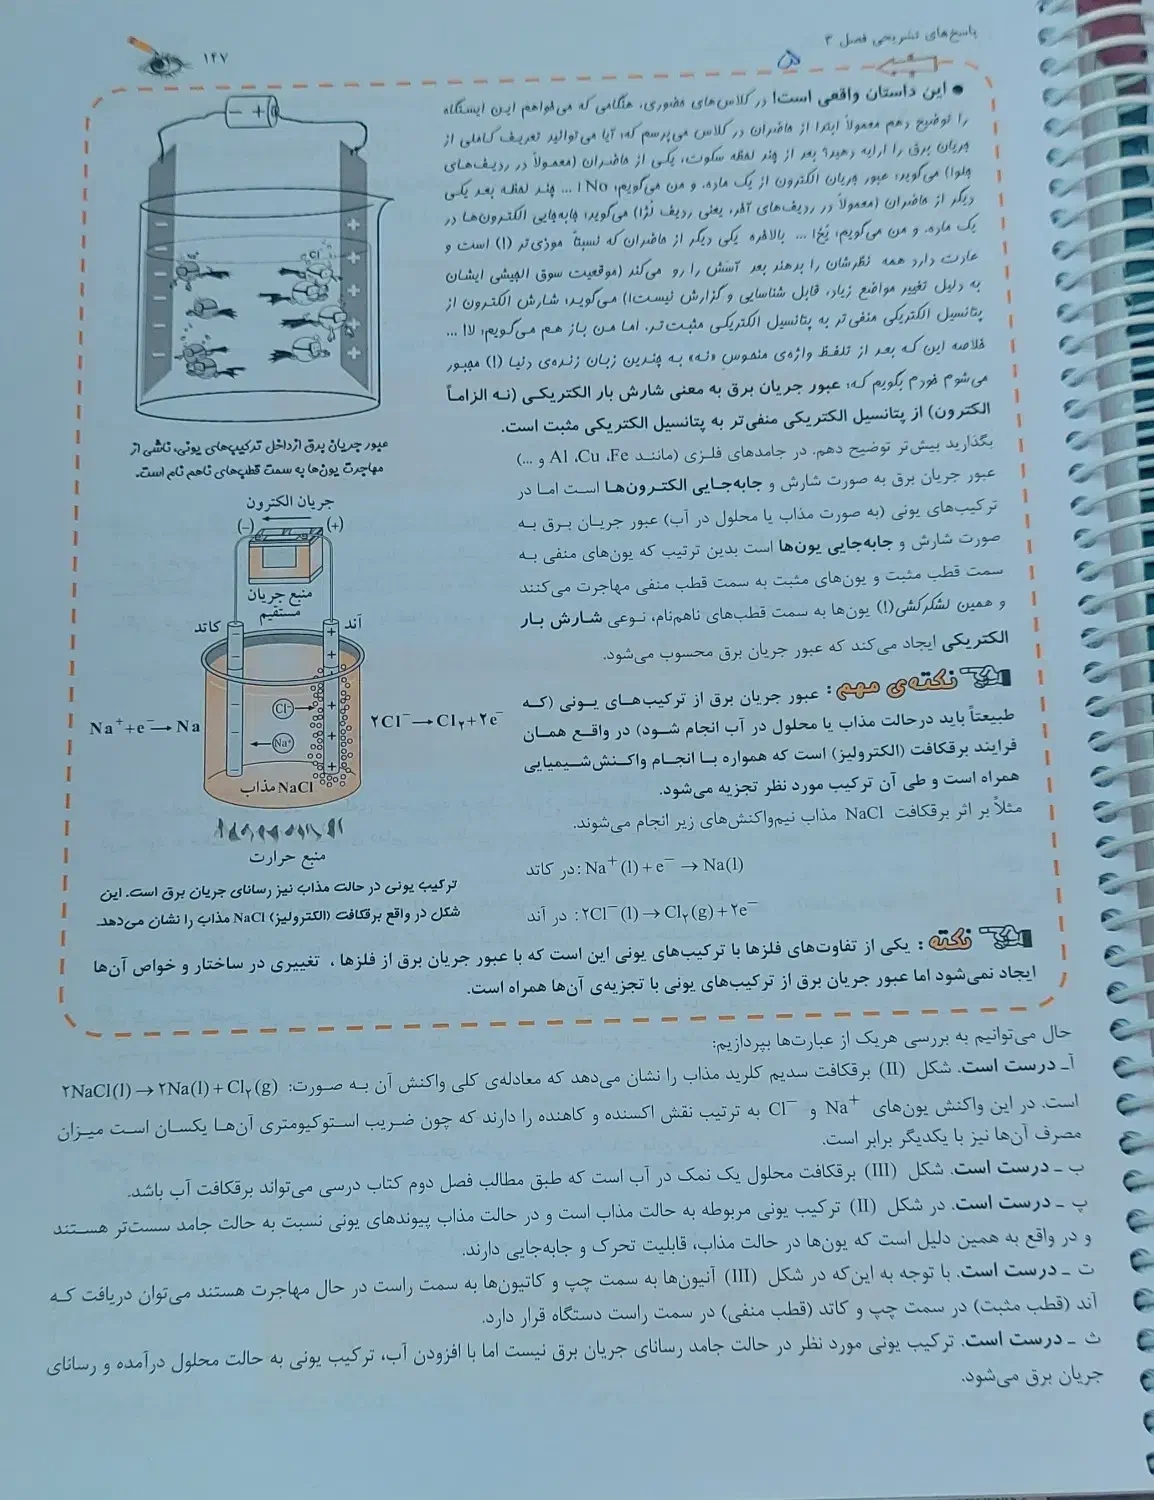 پاسخ‌های تشریحی فصل ۳
۱۴۷
● این داستان واقعی است! در کلاس‌های حضوری، هنگامی که می‌خواهم این ایستگاه
را توضیح دهم معمولاً ابتدا از حاضران در کلاس می‌پرسم که: آیا می‌توانید تعریف کاملی از
جریان برق را ارایه دهید؟ بعد از چند لحظه سکوت، یکی از حاضران (معمولاً در ردیف‌های
جلو!) می‌گوید: عبور جریان الکترون از یک ماده. و من می‌گویم: No ! ... چند لحظه بعد یکی
دیگر از حاضران (معمولاً در ردیف‌های آخر، یعنی ردیف لژ!) می‌گوید: جابه‌جایی الکترون‌ها در
یک ماده. و من می‌گویم: یُخ! ... بالاخره یکی دیگر از حاضران که نسبتاً موذی‌تر (!) است و
عادت دارد همه نظرشان را بدهند بعد آسَش را رو می‌کند (موقعیت سوق الجیشی ایشان
به دلیل تغییر مواضع زیاد، قابل شناسایی و گزارش نیست!) می‌گوید: شارش الکترون از
پتانسیل الکتریکی منفی‌تر به پتانسیل الکتریکی مثبت‌تر. اما من باز هم می‌گویم: لا! ...
خلاصه این که بعد از تلفظ واژه‌ی منحوس «نه» به چندین زبان زنده‌ی دنیا (!) مجبور
می‌شوم خودم بگویم که: عبور جریان برق به معنی شارش بار الکتریکی (نه الزاماً
الکترون) از پتانسیل الکتریکی منفی‌تر به پتانسیل الکتریکی مثبت است.
بگذارید بیش‌تر توضیح دهم. در جامدهای فلزی (مانند Al ،Cu ،Fe و ...)
عبور جریان برق به صورت شارش و جابه‌جایی الکترون‌ها است اما در
ترکیب‌های یونی (به صورت مذاب یا محلول در آب) عبور جریان برق به
صورت شارش و جابه‌جایی یون‌ها است بدین ترتیب که یون‌های منفی به
سمت قطب مثبت و یون‌های مثبت به سمت قطب منفی مهاجرت می‌کنند
و همین لشگرکشی(!) یون‌ها به سمت قطب‌های ناهم‌نام، نوعی شارش بار
الکتریکی ایجاد می‌کند که عبور جریان برق محسوب می‌شود.
نکته‌ی مهم : عبور جریان برق از ترکیب‌های یونی (که
طبیعتاً باید درحالت مذاب یا محلول در آب انجام شود) در واقع همان
فرایند برقکافت (الکترولیز) است که همواره با انجام واکنش‌شیمیایی
همراه است و طی آن ترکیب مورد نظر تجزیه می‌شود.
مثلاً بر اثر برقکافت NaCl مذاب نیم‌واکنش‌های زیر انجام می‌شوند.
در کاتد: Na⁺(l) + e⁻ → Na(l)
در آند : ۲Cl⁻(l) → Cl₂(g) + ۲e⁻
− +
Cl
عبور جریان برق ازداخل ترکیب‌های یونی، ناشی از
مهاجرت یون‌ها به سمت قطب‌های ناهم نام است.
جریان الکترون
(−) (+)
منبع جریان
مستقیم
کاتد
آند
Cl⁻
Na⁺
Na⁺+e⁻→Na
۲Cl⁻→Cl₂+۲e⁻
NaCl مذاب
منبع حرارت
ترکیب یونی در حالت مذاب نیز رسانای جریان برق است. این
شکل در واقع برقکافت (الکترولیز) NaCl مذاب را نشان می‌دهد.
نکته : یکی از تفاوت‌های فلزها با ترکیب‌های یونی این است که با عبور جریان برق از فلزها ، تغییری در ساختار و خواص آن‌ها
ایجاد نمی‌شود اما عبور جریان برق از ترکیب‌های یونی با تجزیه‌ی آن‌ها همراه است.
حال می‌توانیم به بررسی هریک از عبارت‌ها بپردازیم:
آ_ درست است. شکل (II) برقکافت سدیم کلرید مذاب را نشان می‌دهد که معادله‌ی کلی واکنش آن به صورت: ۲NaCl(l) → ۲Na(l) + Cl₂(g)
است. در این واکنش یون‌های Na⁺ و Cl⁻ به ترتیب نقش اکسنده و کاهنده را دارند که چون ضریب استوکیومتری آن‌ها یکسان است میزان
مصرف آن‌ها نیز با یکدیگر برابر است.
ب _ درست است. شکل (III) برقکافت محلول یک نمک در آب است که طبق مطالب فصل دوم کتاب درسی می‌تواند برقکافت آب باشد.
پ _ درست است. در شکل (II) ترکیب یونی مربوطه به حالت مذاب است و در حالت مذاب پیوندهای یونی نسبت به حالت جامد سست‌تر هستند
و در واقع به همین دلیل است که یون‌ها در حالت مذاب، قابلیت تحرک و جابه‌جایی دارند.
ت _ درست است. با توجه به این‌که در شکل (III) آنیون‌ها به سمت چپ و کاتیون‌ها به سمت راست در حال مهاجرت هستند می‌توان دریافت که
آند (قطب مثبت) در سمت چپ و کاتد (قطب منفی) در سمت راست دستگاه قرار دارد.
ث _ درست است. ترکیب یونی مورد نظر در حالت جامد رسانای جریان برق نیست اما با افزودن آب، ترکیب یونی به حالت محلول درآمده و رسانای
جریان برق می‌شود.